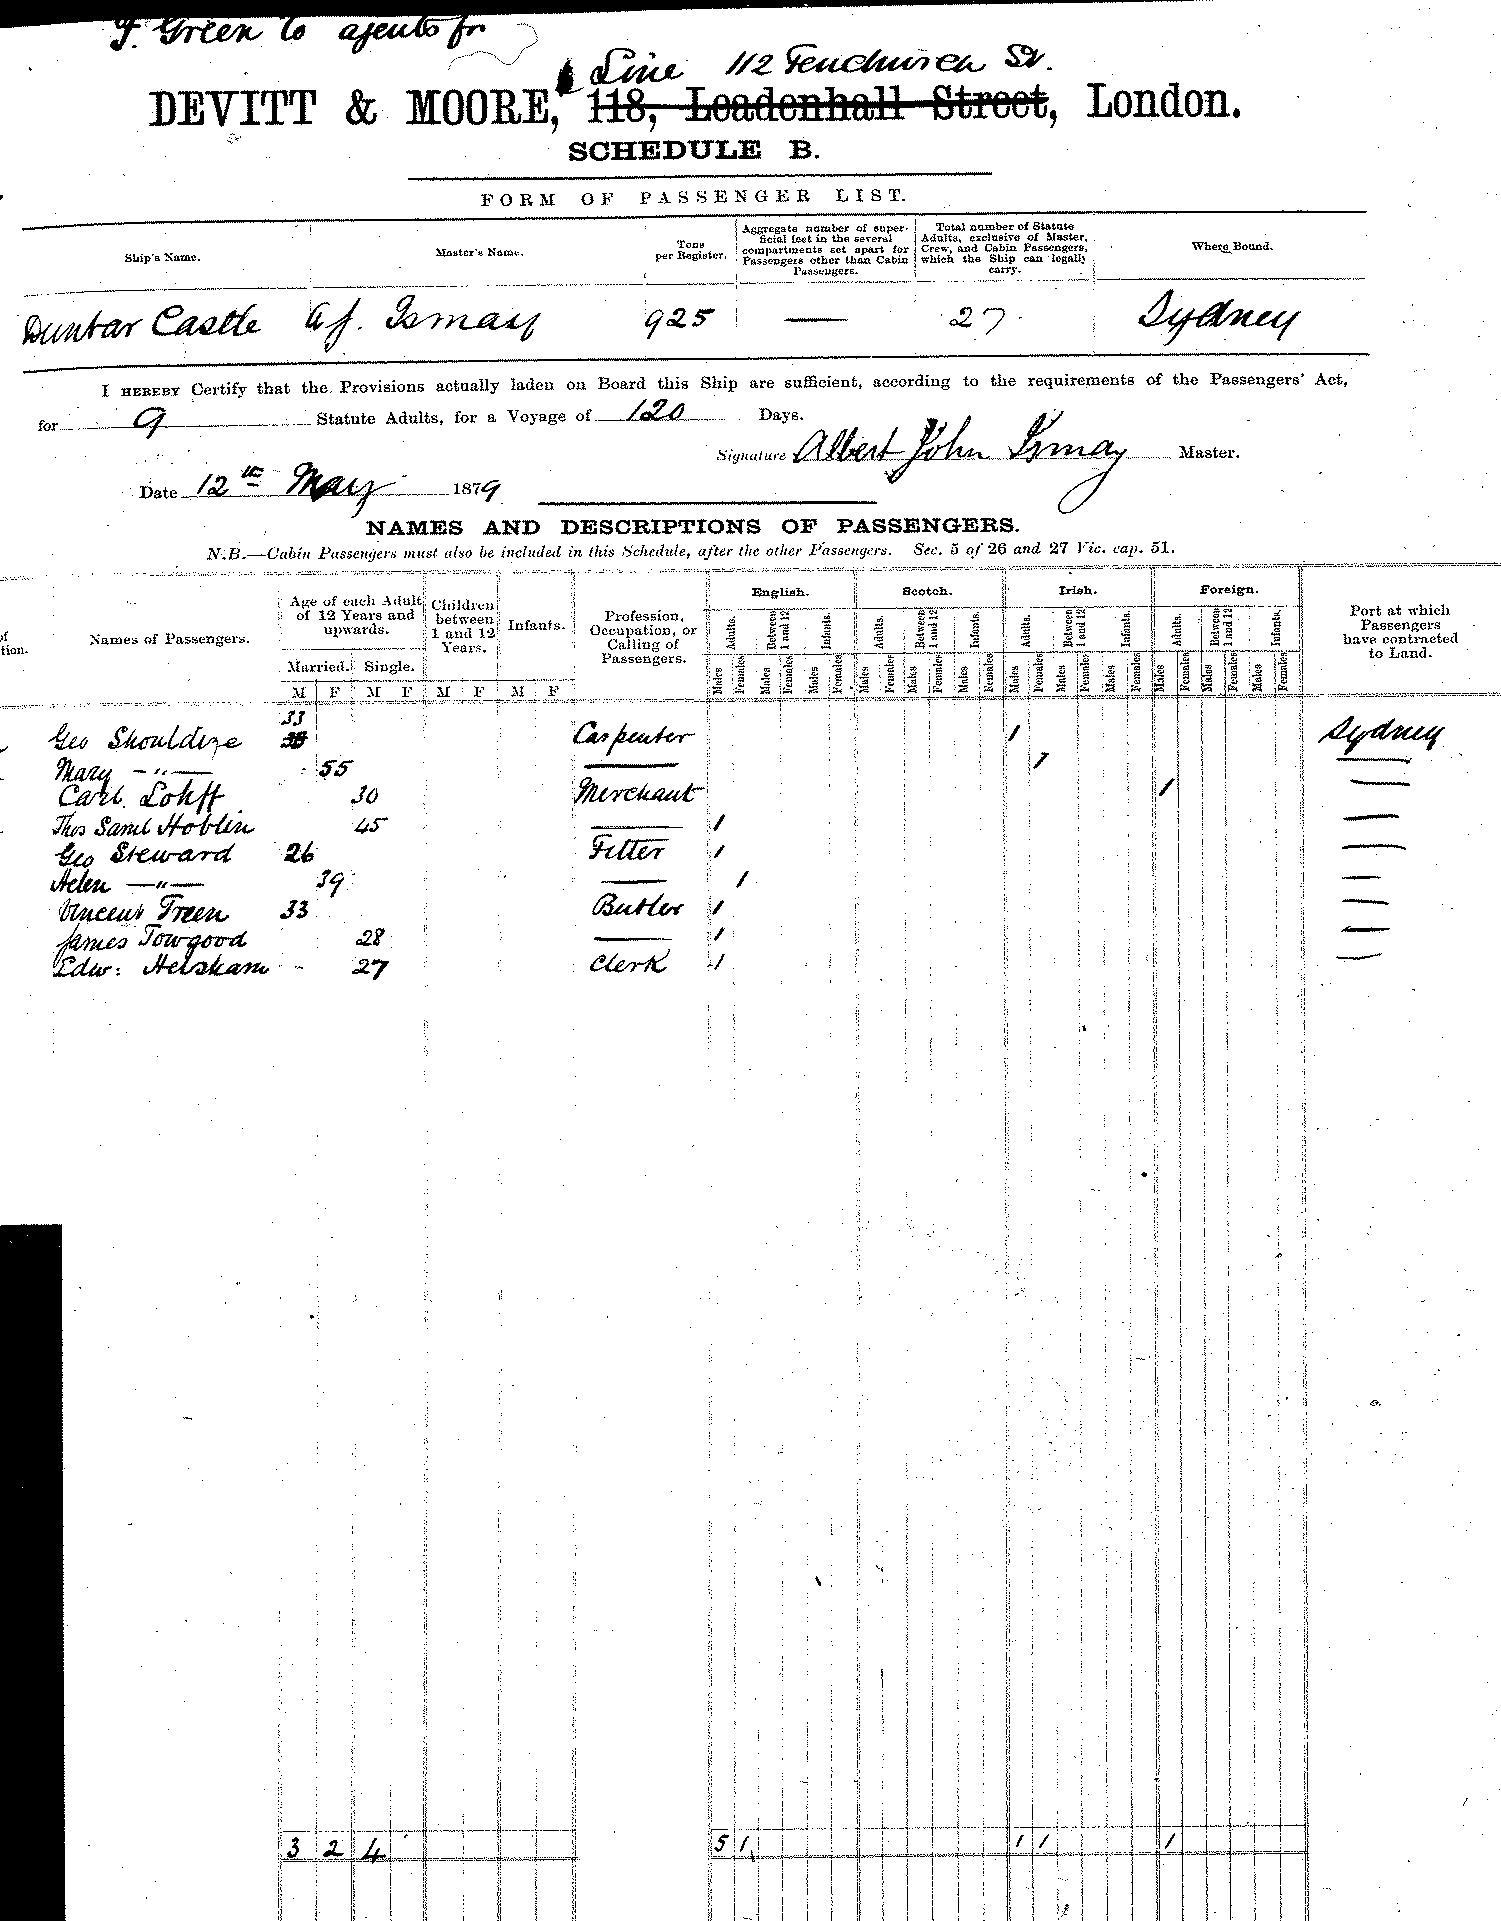 F. Green to agents for
Line 112 Fenchurch St.
DEVITT & MOORE, 118, Leadenhall Street, London.
SCHEDULE B.
FORM OF PASSENGER LIST.
Ship's Name. Master's Name. Tons per Register. Aggregate number of superficial feet in the several compartments set apart for Passengers other than Cabin Passengers. Total number of Statute Adults, exclusive of Master, Crew, and Cabin Passengers, which the Ship can legally carry. Where Bound.
Dunbar Castle A J. Ismay 925 — 27 Sydney
I HEREBY Certify that the Provisions actually laden on Board this Ship are sufficient, according to the requirements of the Passengers' Act,
for 9 Statute Adults, for a Voyage of 120 Days.
Signature Albert John Ismay Master.
Date 12th May 1879
NAMES AND DESCRIPTIONS OF PASSENGERS.
N.B.—Cabin Passengers must also be included in this Schedule, after the other Passengers. Sec. 5 of 26 and 27 Vic. cap. 51.
Names of Passengers. Age of each Adult of 12 Years and upwards. Children between 1 and 12 Years. Infants. Profession, Occupation, or Calling of Passengers. English. Scotch. Irish. Foreign. Port at which Passengers have contracted to Land.
Adults. Between 1 and 12 Infants. Adults. Between 1 and 12 Infants. Adults. Between 1 and 12 Infants. Adults. Between 1 and 12 Infants.
Married. Single.
M F M F M F M F Males Females Males Females Males Females Males Females Males Females Males Females Males Females Males Females Males Females Males Females Males Females Males Females
33
Geo Shouldize Carpenter 1 Sydney
Mary — " — 55 — 1 —
Carl. Lohff 30 Merchant 1 —
Thos Saml Hoblin 45 — 1 —
Geo Steward 26 Fitter 1 —
Helen — " — 39 — 1 —
Vincent Treen 33 Butler 1 —
James Towgood 28 — 1 —
Edw: Helsham 27 Clerk 1 —
3 2 4 5 1 1 1 1